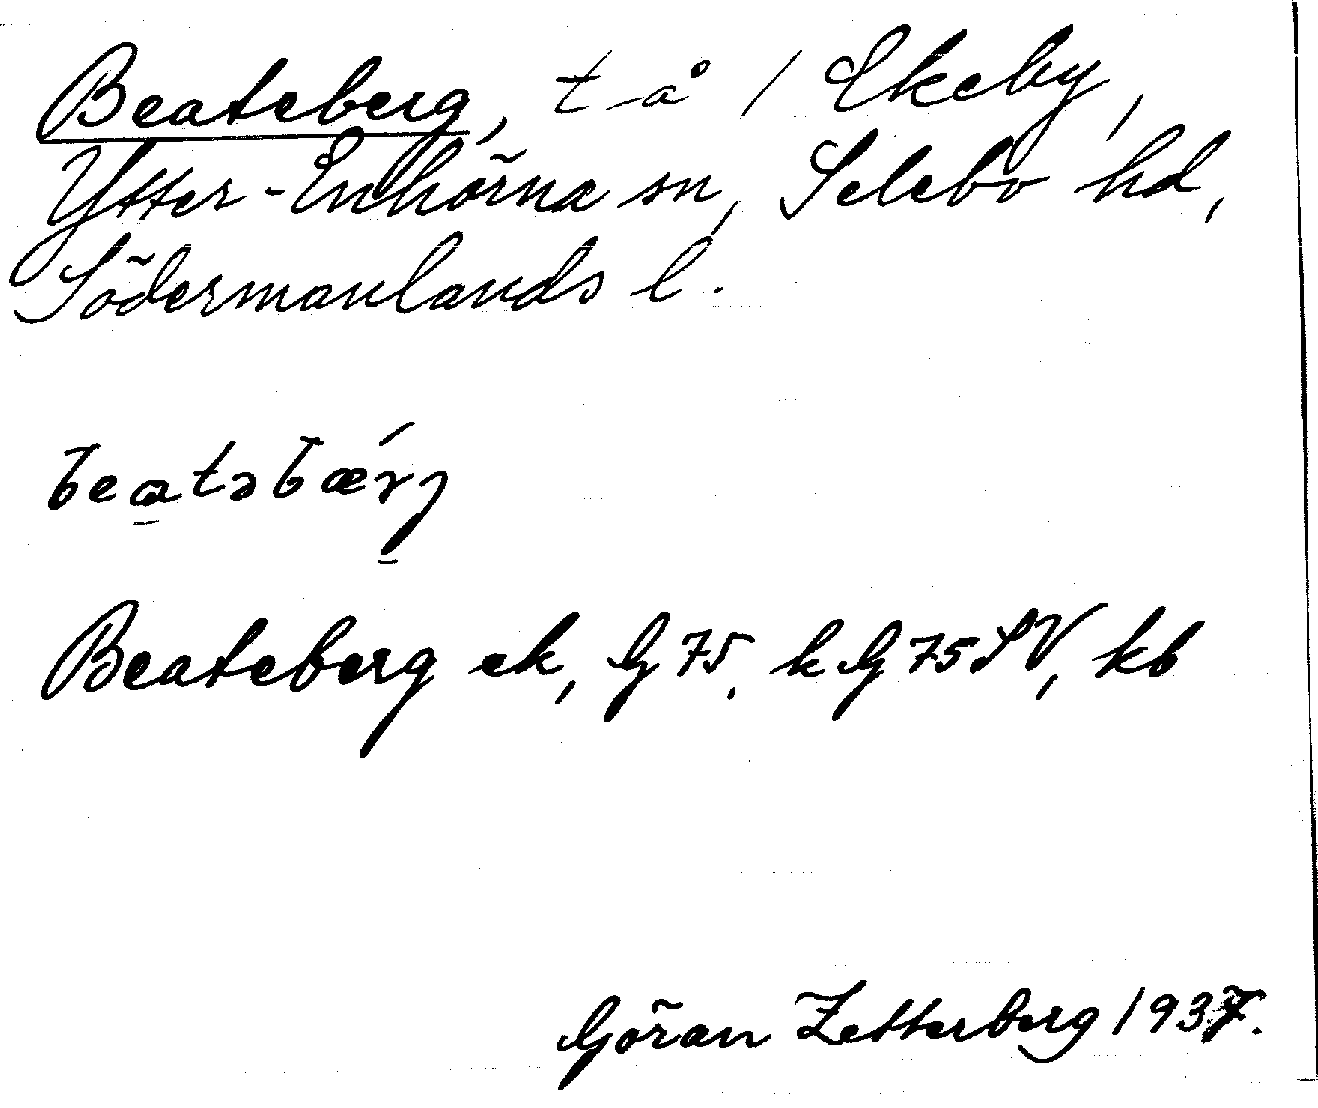 Beateberg, t–å / Ekeby,
Ytter-Enhörna sn, Selebo hd,
Södermanlands l.
beatəbærj
Beateberg ek, G 75, k G 75 SV, kb
Göran Zetterberg 1937.